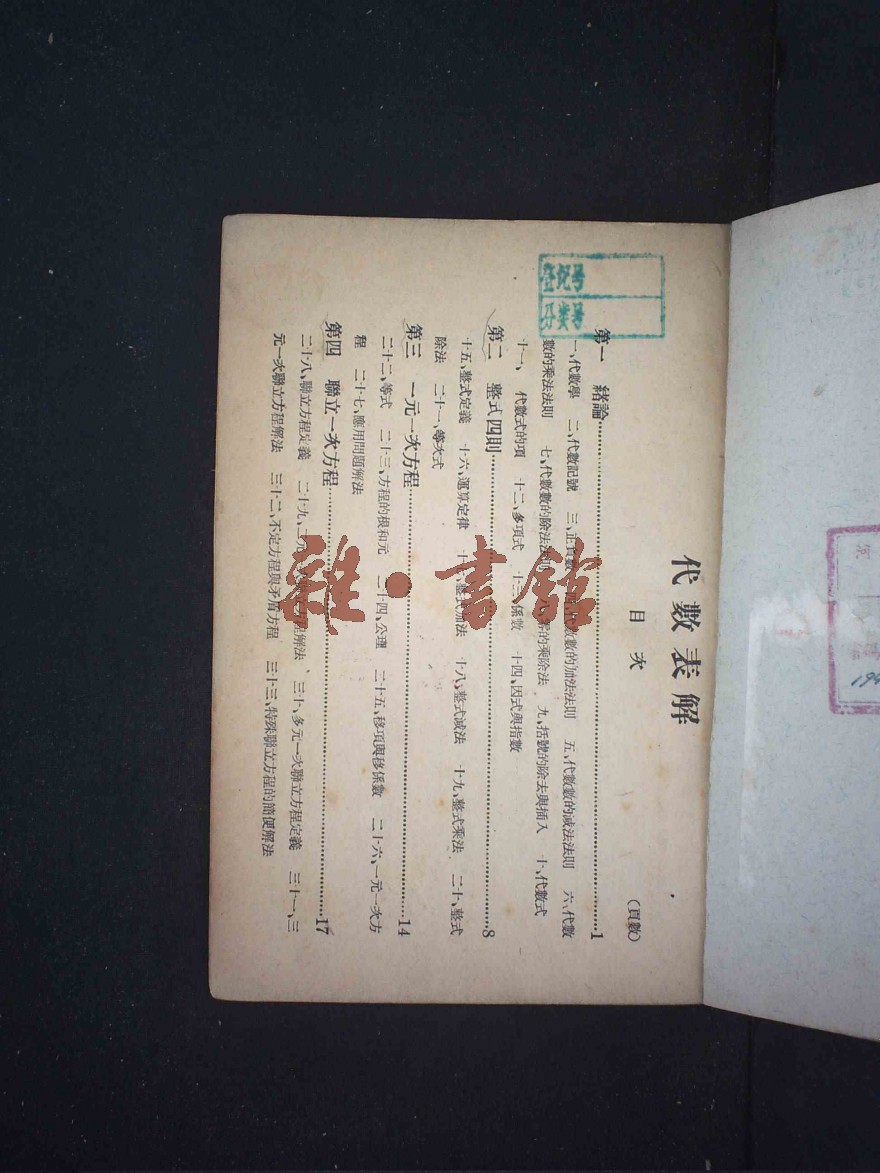 代數表解
目次
(頁數)
第一 緒論……1
一、代數學 二、代數記號 三、正負數 代數數的加法法則 五、代數數的减法法則 六、代數
數的乘法法則 七、代數數的除法法則 的乘除法 九、括號的除去與插入 十、代數式
十一、代數式的項 十二、多項式 十三、係數 十四、因式與指數
第二 整式四則……8
十五、整式定義 十六、運算定律 十七、整式加法 十八、整式减法 十九、整式乘法 二十、整式
除法 二十一、等次式
第三 一元一次方程……14
二十二、等式 二十三、方程的根和元 二十四、公理 二十五、移項與移係數 二十六、一元一次方
程 二十七、應用問題解法
第四 聯立一次方程……17
二十八、聯立方程定義 二十九、二元 聯立方程解法 三十、多元一次聯立方程定義 三十一、三
元一次聯立方程解法 三十二、不定方程與矛盾方程 三十三、特殊聯立方程的簡便解法
登記号
分类号
書